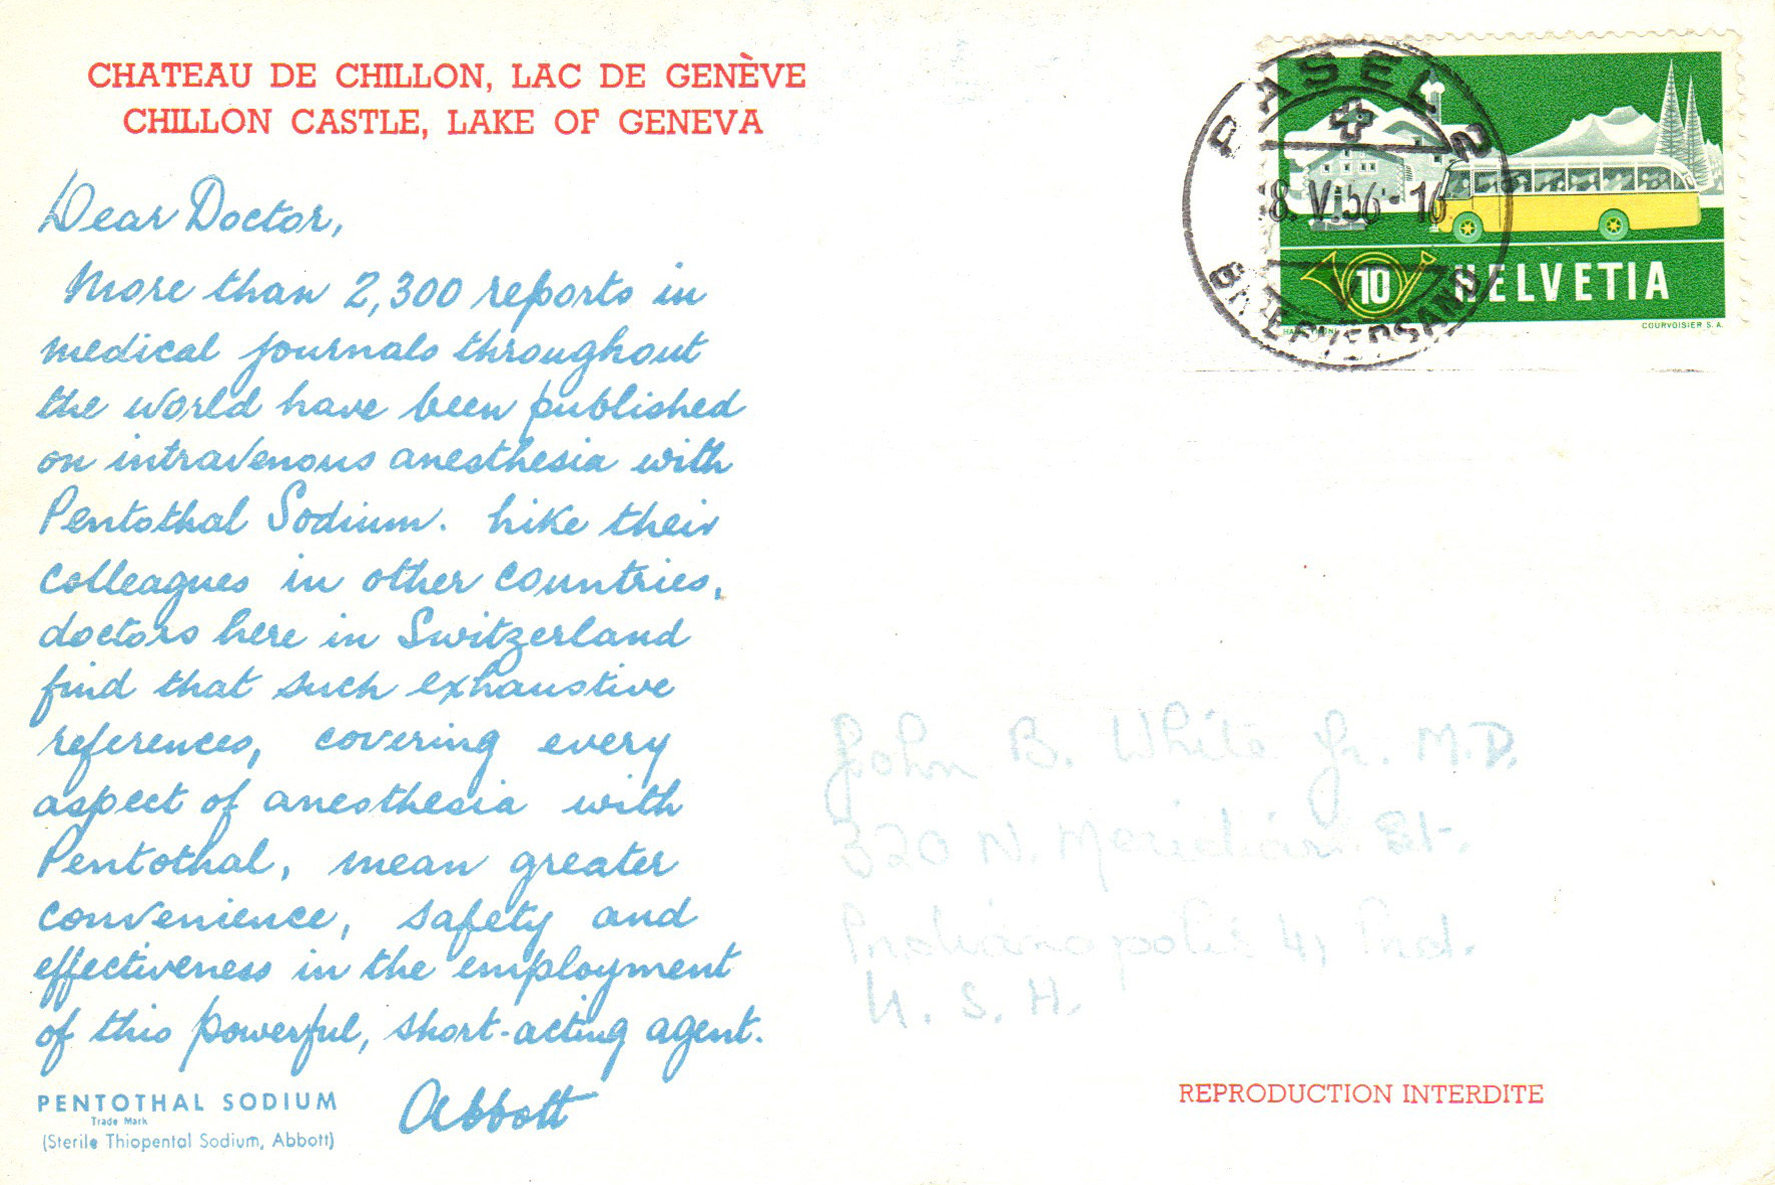 CHATEAU DE CHILLON, LAC DE GENÈVE
CHILLON CASTLE, LAKE OF GENEVA
Dear Doctor,
More than 2,300 reports in
medical journals throughout
the world have been published
on intravenous anesthesia with
Pentothal Sodium. Like their
colleagues in other countries,
doctors here in Switzerland
find that such exhaustive
references, covering every
aspect of anesthesia with
Pentothal, mean greater
convenience, safety and
effectiveness in the employment
of this powerful, short-acting agent.
Abbott
PENTOTHAL SODIUM
Trade Mark
(Sterile Thiopental Sodium, Abbott)
BASEL 2
8.V.56-16
BRIEFVERSAND
10 HELVETIA
COURVOISIER S.A.
John B. White Jr. M.D.
320 N. Meridian St.
Indianapolis 4, Ind.
U.S.A.
REPRODUCTION INTERDITE